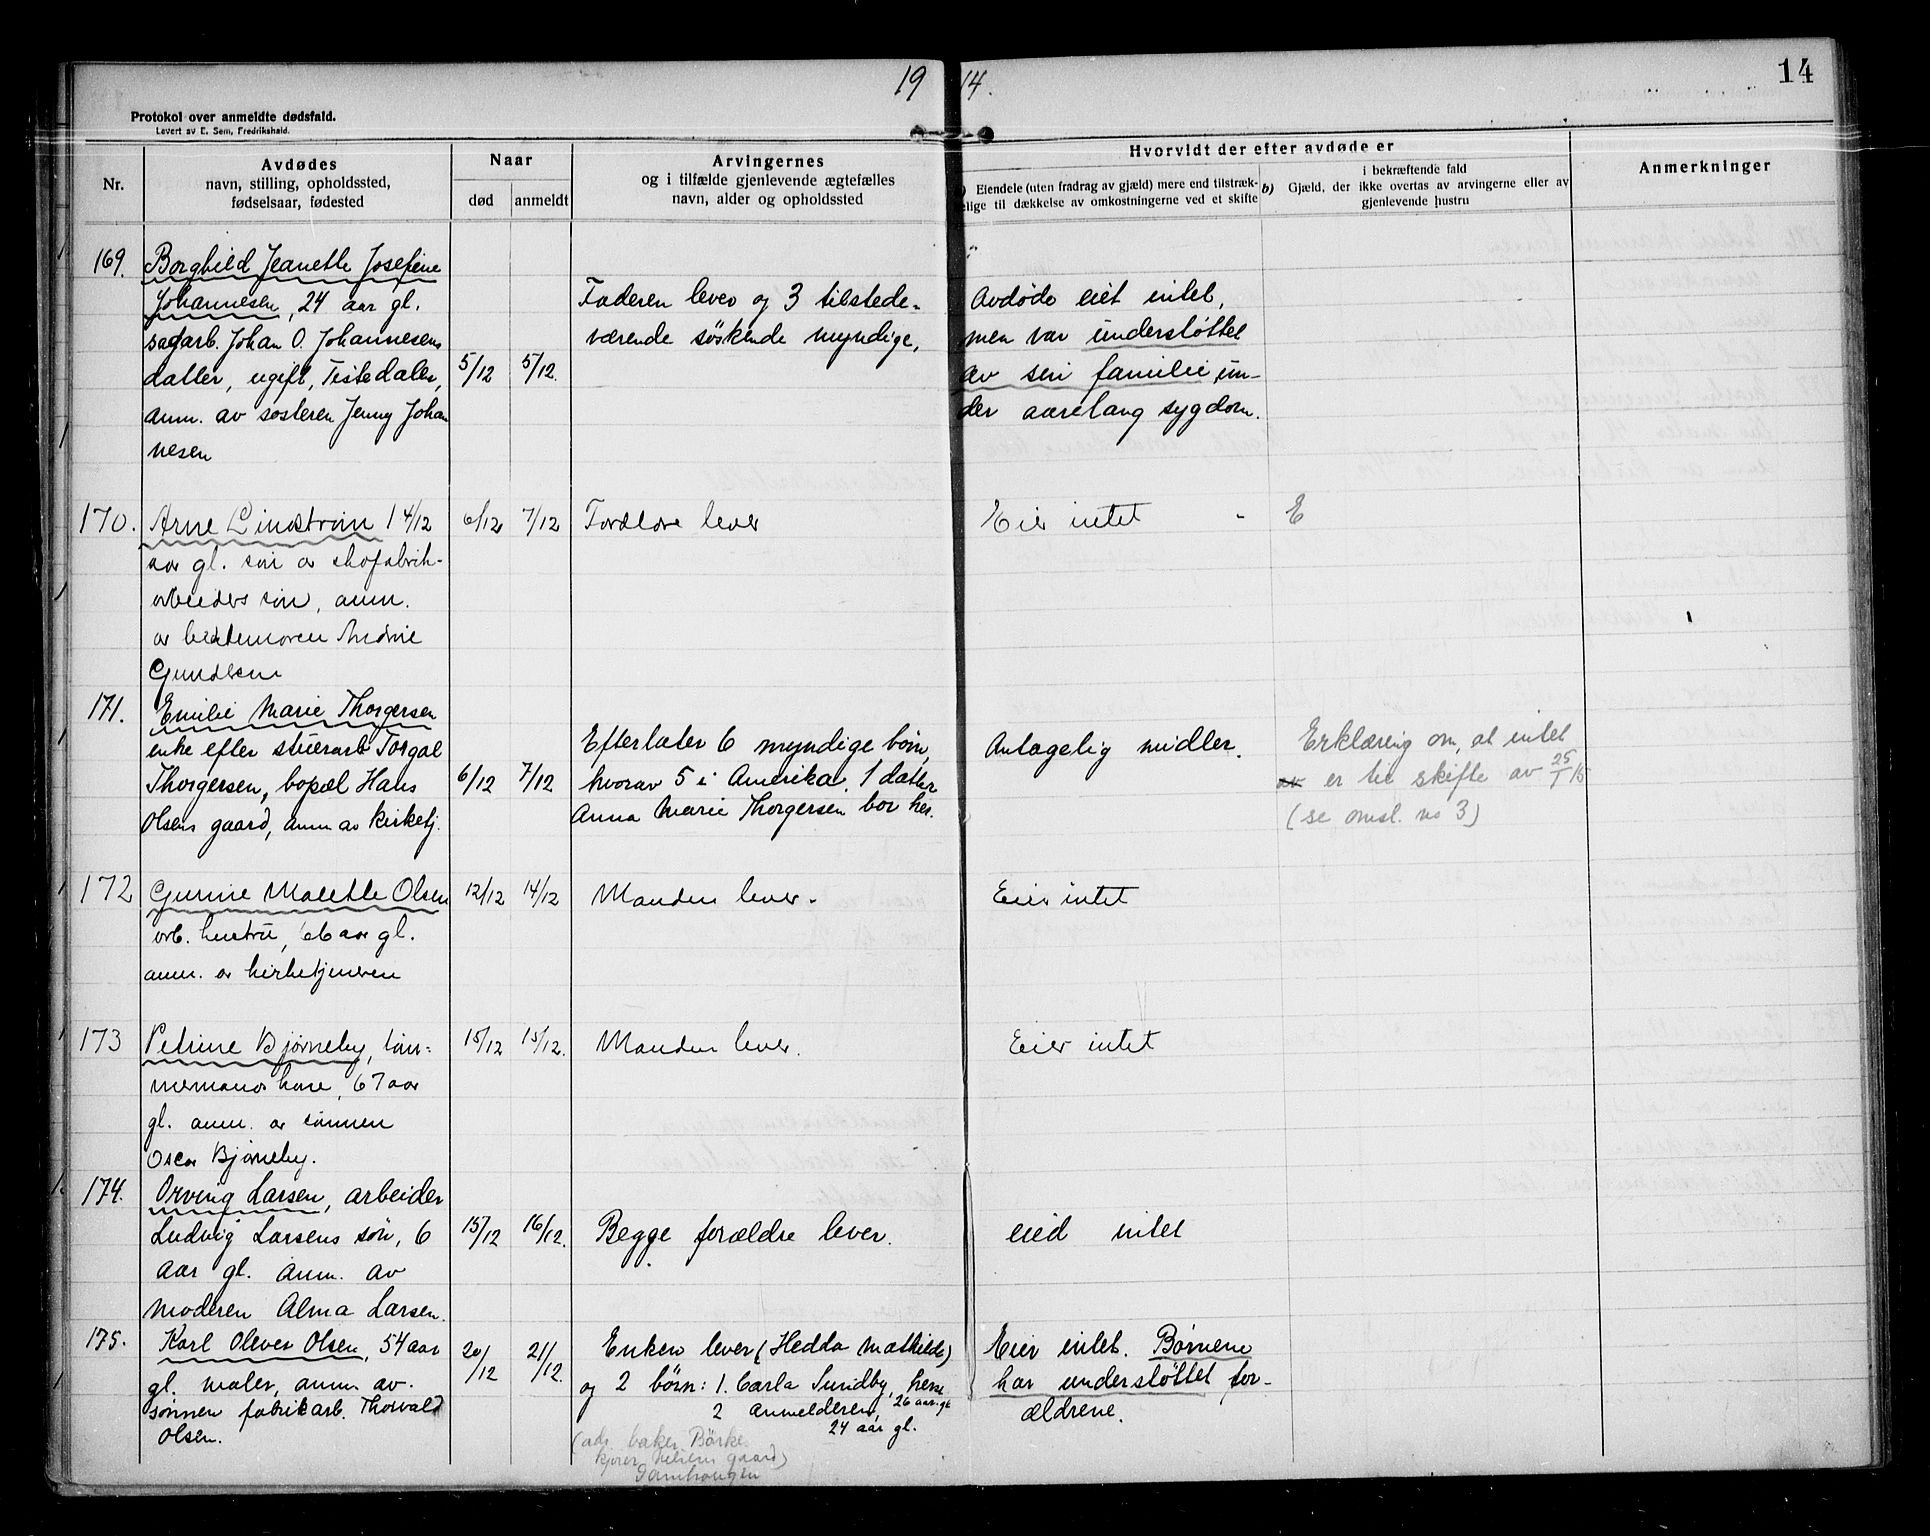 19 14.
14
Protokol over anmeldte dødsfald.
Levert av E. Sem, Fredrikshald.
Nr.
Avdødes
navn, stilling, opholdssted,
fødselsaar, fødested
Naar
død
anmeldt
Arvingernes
og i tilfælde gjenlevende ægtefælles
navn, alder og opholdssted
Hvorvidt der efter avdøde er
Eiendele (uten fradrag av gjæld) mere end tilstræk-
elige til dækkelse av omkostningerne ved et skifte
i bekræftende fald
b) Gjæld, der ikke overtas av arvingerne eller av
gjenlevende hustru
Anmerkninger
169.
Borghild Jeanette Josefine
Johannesen, 24 aar gl.
sagarb. Johan O. Johannesens
datter, ugift, Tistedalen,
anm. av søsteren Jenny Johan
nesen
5/12
5/12.
Faderen lever og 3 tilstede-
værende søskende myndige,
Avdøde eiet intet,
men var understøttet
av sin familie un-
der aarelang sygdom.
170.
Arne Lindstrøm 1 4/12
aar gl. søn av skofabrik-
arbeiders søn, anm.
av bestemoren Andrine
Gundersen
6/12
7/12
Forældre lever
Eier intet
E
171.
Emilie Marie Thorgersen
enke efter stuerarb Torgal
Thorgersen, bopæl Hans
Olsens gaard, anm av kirketj.
6/12
7/12
Efterlater 6 myndige børn,
hvorav 5 i Amerika. 1 datter
Anna Marie Thorgersen bor her.
Antagelig midler.
Erklæring om, at intet
av er til skifte av 25/1 15
(se omsl. no 3)
172
Gunine Malette Olsen
arb. hustru, 66 aar gl.
anm. av kirketjeneren
12/12
14/12
Manden lever.
Eier intet
173
Petrine Bjørneby, tøm-
mermands kone, 67 aar
gl. anm. av sønnen
Oscar Bjørneby.
15/12
15/12.
Manden lever.
Eier intet
174.
Orving Larsen, arbeider
Ludvig Larsens søn, 6
aar gl. anm. av
moderen Alma Larsen.
15/12
16/12.
Begge forældre lever.
eied intet
175.
Karl Oliver Olsen, 54 aar
gl. maler, anm. av.
sønnen fabrikarb. Thorvald
Olsen.
20/12
21/12.
Enken lever (Hedda Mathilde)
og 2 børn: 1. Carla Sundby, her
26 aar gl
2 Anmelderen,
24 aar gl.
(adr. baker Børke
Nilsens gaard)
Damhaugen
Eier intet. Børnene
har understøttet for-
ældrene.